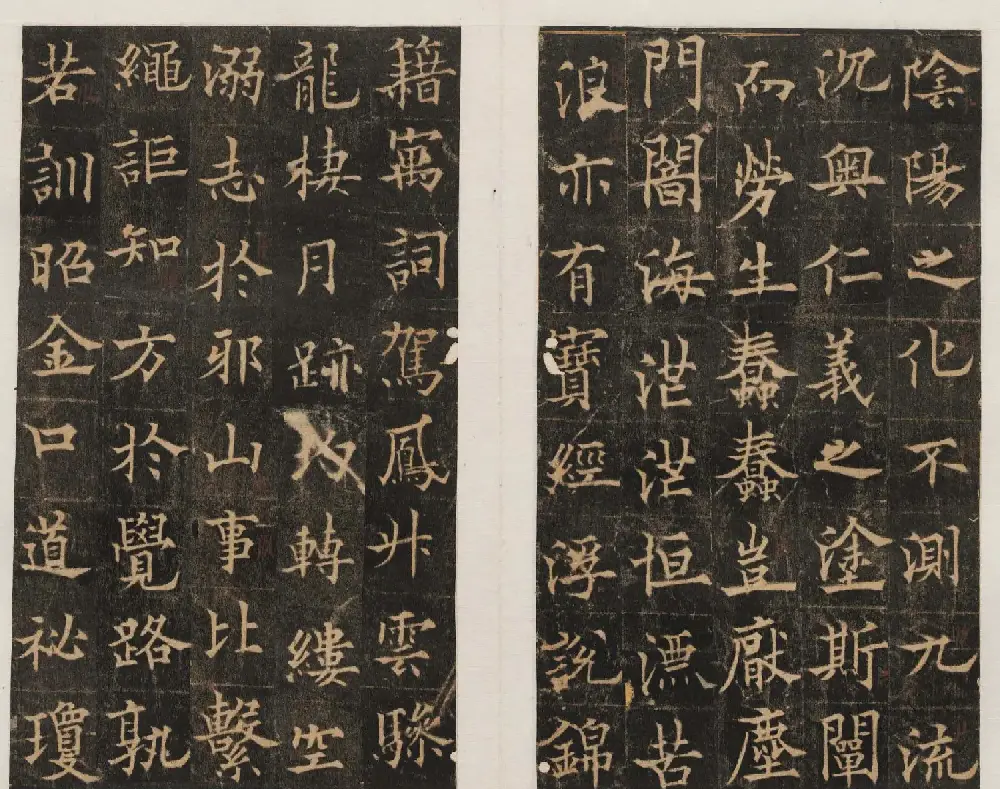 陰陽之化不測九流
沉奧仁義之塗斯闡
而勞生蠢蠢豈厭塵
門闇海茫茫恒漂苦
浪亦有寶經浮說錦
籍寓詞駕鳳升雲驂
龍棲月跡轉縷空
溺志於邪山事比繫
繩詎知方於覺路孰
若訓昭金口道祕瓊